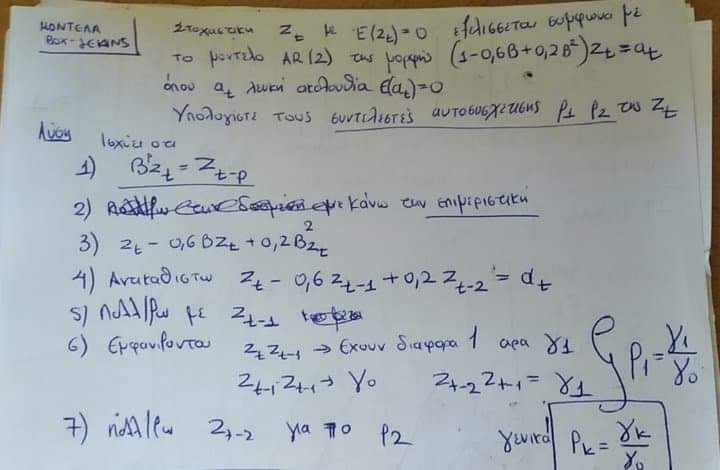 ΜΟΝΤΕΛΑ
BOX-JEKINS
Στοχαστικη Z_t με E(Z_t)=0 εξελισσεται συμφωνα με
το μοντελο AR(2) της μορφης (1-0,6B+0,2B²)Z_t=a_t
όπου a_t λευκη ακολουθια E(a_t)=0
Υπολογίστε τους συντελεστές αυτοσυσχετισης ρ1 ρ2 της Z_t
Λύση
Ισχύει οτι
1) B^p z_t = Z_{t-p}
2) κανω την επιμεριστική
3) z_t - 0,6BZ_t + 0,2B²z_t
4) Ανικαθιστω Z_t - 0,6 Z_{t-1} + 0,2 Z_{t-2} = a_t
5) Πολλ/ζω με Z_{t-1}
6) Εμφανιζονται Z_t Z_{t-1} → Εχουν διαφορα 1 αρα γ1
Z_{t-1} Z_{t-1} → γ0 Z_{t-2} Z_{t-1} = γ1
ρ1 = γ1/γ0
7) Πολλ/ζω Z_{t-2} για το ρ2
γενικά ρκ = γκ/γ0